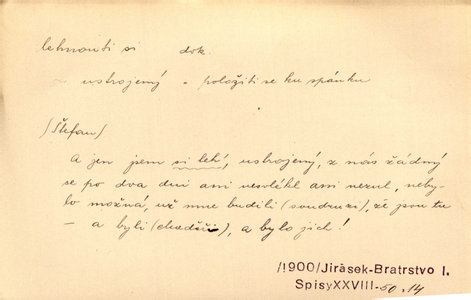 lehnouti si dok.
~ ustrojený = položiti se ku spánku
/Štefan/
A jen jsem si lehl, ustrojený, z nás žádný
se po dva dni ani nesvlékl ani nezul, neby-
lo možná, už mne budili (soudruzi), že jsou tu
– a byli (chodští), a bylo jich!
/1900/Jirásek-Bratrstvo I.
Spisy XXVIII-50.14